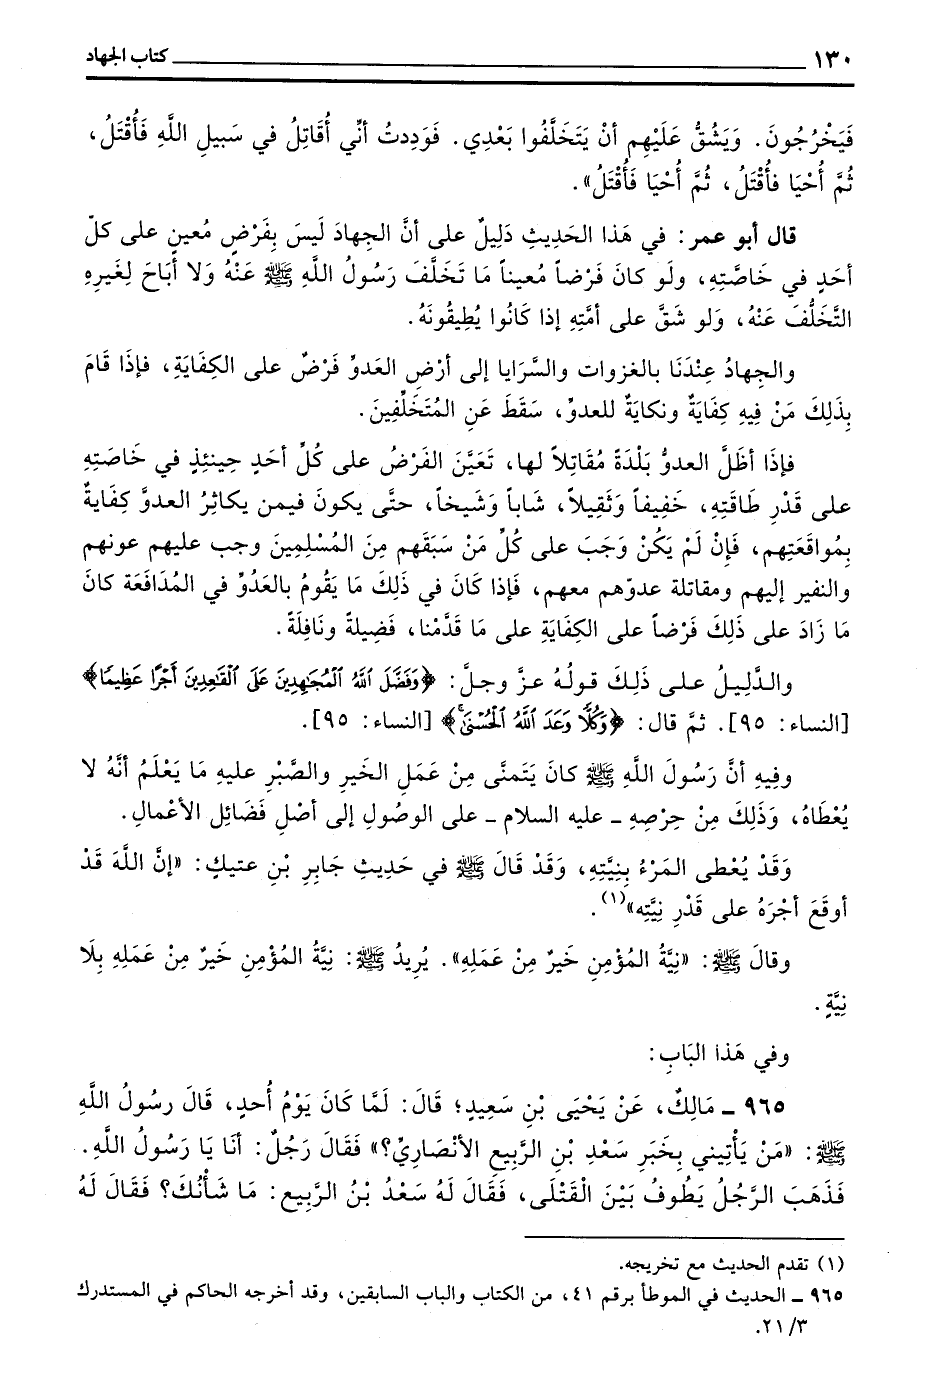 ١٣٠ كتاب الجهاد
فَيَخْرُجُونَ. وَيَشُقُّ عَلَيْهِم أنْ يَتَخَلَّفُوا بَعْدِي. فَوَدِدتُ أنِّي أُقَاتِلُ في سَبِيلِ اللَّهِ فَأُقْتَلُ،
ثُمَّ أُحْيَا فأُقْتَلُ، ثُمَّ أُحْيَا فَأُقْتَلُ».
قال أبو عمر: في هَذَا الحَدِيثِ دَلِيلٌ على أنَّ الجِهادَ لَيسَ بِفَرْضٍ مُعينٍ على كلّ
أحَدٍ في خَاصَّتِهِ، ولَو كانَ فَرْضاً مُعيناً مَا تَخَلَّفَ رَسُولُ اللَّهِ ﷺ عَنْهُ وَلا أَبَاحَ لِغَيرِهِ
التَّخَلُّفَ عَنْهُ، وَلو شَقَّ على أمَّتِهِ إذا كَانُوا يُطِيقُونَهُ.
والجِهادُ عِنْدَنَا بالغزوات والسَّرَايا إلى أرْضِ العَدوِّ فَرْضٌ على الكِفَايَةِ، فإذَا قَامَ
بِذَلِكَ مَنْ فِيهِ كِفَايَةٌ ونكايَةٌ للعدوِّ، سَقَطَ عَنِ المُتَخَلِّفِينَ.
فإذَا أظَلَّ العدوُّ بَلْدَةً مُقَاتِلاً لها، تَعَيَّنَ الفَرْضُ على كُلِّ أحَدٍ حِينَئِذٍ في خَاصَتِهِ
على قَدْرِ طَاقَتِهِ، خَفِيفاً وَثَقِيلاً، شَاباً وَشَيخاً، حتَّى يكونَ فيمن يكاثِرُ العدوَّ كِفَايةٌ
بِمُواقَعَتِهم، فَإِنْ لَمْ يَكُنْ وَجَبَ على كُلِّ مَنْ سَبَقَهم مِنَ المُسْلِمِينَ وجب عليهم عونهم
والنفير إليهم ومقاتلة عدوّهم معهم، فَإذا كَانَ في ذَلِكَ مَا يَقُومُ بالعَدُوِّ في المُدَافَعَة كانَ
مَا زَادَ على ذَلِكَ فَرْضاً على الكِفَايَةِ على مَا قَدَّمْنا، فَضِيلةً ونَافِلَةً.
والدَّلِيلُ على ذَلِكَ قولُهُ عزَّ وجلَّ: ﴿وَفَضَّلَ اللَّهُ الْمُجَاهِدِينَ عَلَى الْقَاعِدِينَ أَجْرًا عَظِيمًا﴾
[النساء: ٩٥]. ثمَّ قال: ﴿وَكُلًّا وَعَدَ اللَّهُ الْحُسْنَىٰ﴾ [النساء: ٩٥].
وفيهِ أنَّ رَسُولَ اللَّهِ ﷺ كانَ يَتَمنَّى مِنْ عَمَلِ الخَيرِ والصَّبْرِ عليهِ مَا يَعْلَمُ أنَّهُ لا
يُعْطَاهُ، وَذَلِكَ مِنْ حِرْصِهِ - عليه السلام - على الوصُولِ إلى أصْلِ فَضَائِل الأعْمالِ.
وَقَدْ يُعْطى المَرْءُ بِنِيَّتِهِ، وَقَدْ قَالَ ﷺ في حَدِيثِ جَابِرِ بْنِ عتيكٍ: «إنَّ اللَّهَ قَدْ
أوقَعَ أجْرَهُ على قَدْرِ نِيَّتِه»(١).
وقالَ ﷺ: «نِيَّةُ المُؤْمِنِ خَيرٌ مِنْ عَمَلِهِ». يُرِيدُ ﷺ: نِيَّةُ المُؤْمِنِ خَيرٌ مِنْ عَمَلِهِ بِلَا
نِيَّةٍ.
وفي هَذا البَابِ:
٩٦٥ - مَالِكٌ، عَنْ يَحْيَى بْنِ سَعِيدٍ؛ قَالَ: لَمَّا كَانَ يَوْمُ أُحدٍ، قَالَ رسُولُ اللَّهِ
ﷺ: «مَنْ يَأْتِيني بِخَبَرِ سَعْدِ بْنِ الرَّبِيعِ الأنْصَارِيِّ؟» فَقَالَ رَجُلٌ: أنَا يَا رَسُولُ اللَّهِ.
فَذَهَبَ الرَّجُلُ يَطُوفُ بَيْنَ الْقَتْلَى، فَقَالَ لَهُ سَعْدُ بْنُ الرَّبِيع: مَا شَأْنُكَ؟ فَقَالَ لَهُ
(١) تقدم الحديث مع تخريجه.
٩٦٥ - الحديث في الموطأ برقم ٤١، من الكتاب والباب السابقين، وقد أخرجه الحاكم في المستدرك
٢١/٣.